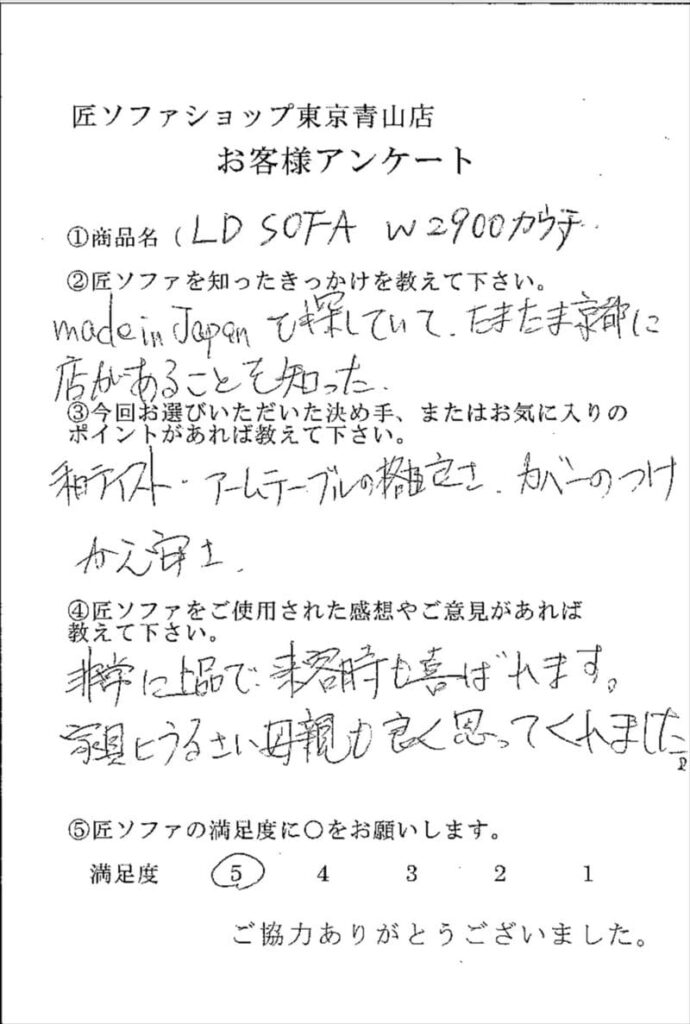 匠ソファショップ東京青山店
お客様アンケート
①商品名（LD SOFA W2900カウチ
②匠ソファを知ったきっかけを教えて下さい。
made in Japan で探していて、たまたま京都に
店があることを知った.
③今回お選びいただいた決め手、またはお気に入りの
ポイントがあれば教えて下さい。
和テイスト・アームテーブルの、カバーのつけ
かえ
④匠ソファをご使用された感想やご意見があれば
教えて下さい。
非常に上品で、来客時も喜ばれます。
家具にうるさい母親も良く思ってくれました
⑤匠ソファの満足度に○をお願いします。
満足度 5 4 3 2 1
ご協力ありがとうございました。